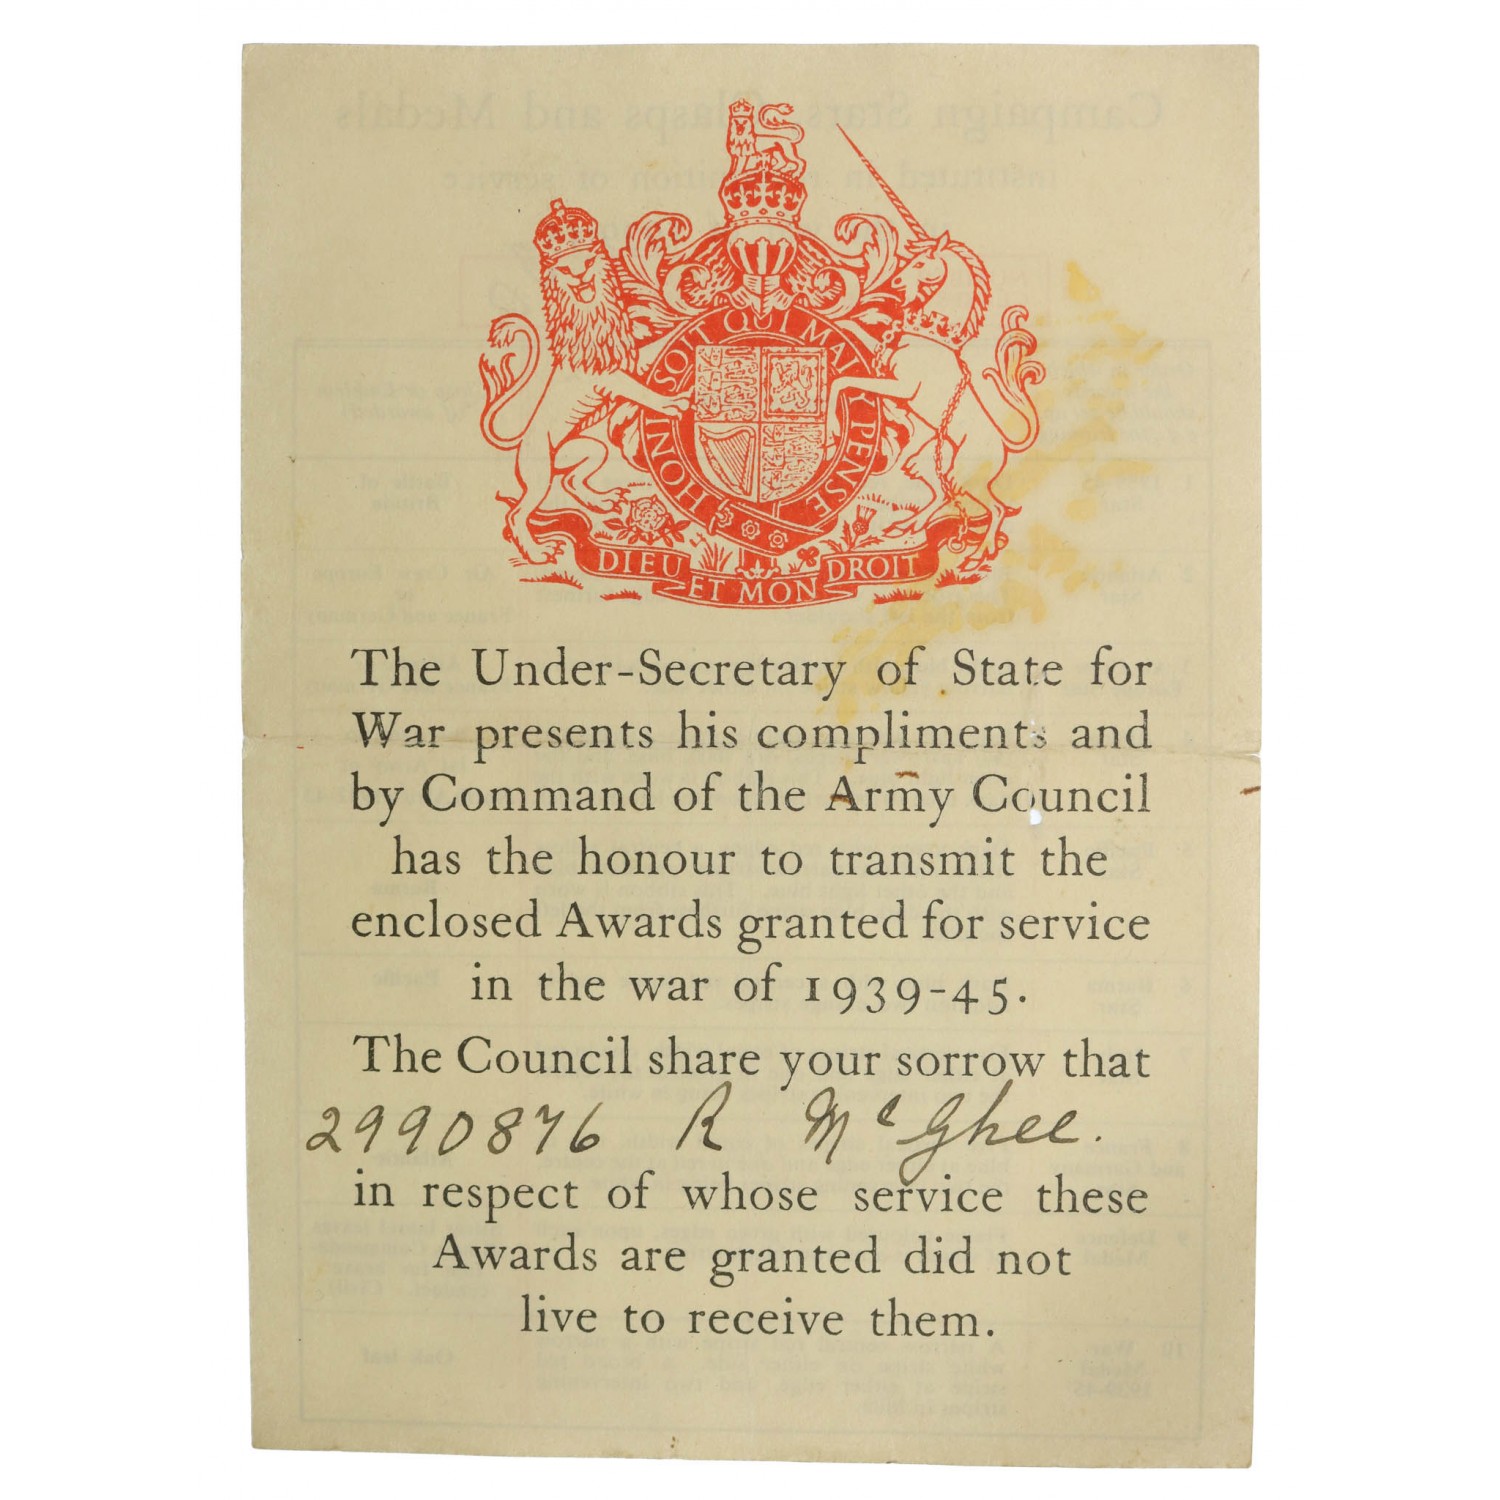 HONI SOIT QUI MAL Y PENSE
DIEU ET MON DROIT
The Under-Secretary of State for
War presents his compliments and
by Command of the Army Council
has the honour to transmit the
enclosed Awards granted for service
in the war of 1939-45.
The Council share your sorrow that
2990876 R McGhee.
in respect of whose service these
Awards are granted did not
live to receive them.